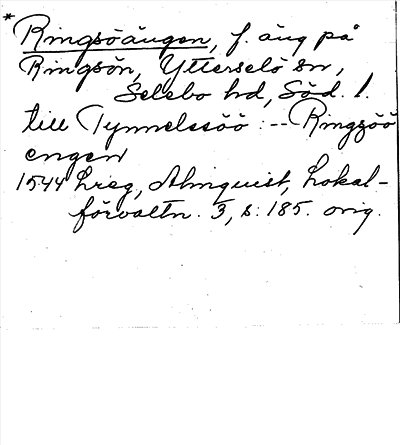 * Ringsöängen, f. äng på
Ringsön, Ytterselö sn,
Selebo hd, Söd. l.
till Tynnelssöö : -- Ringzöö
engen
1544 hreg, Almquist, Lokal-
förvaltn. 3, s. 185. orig.